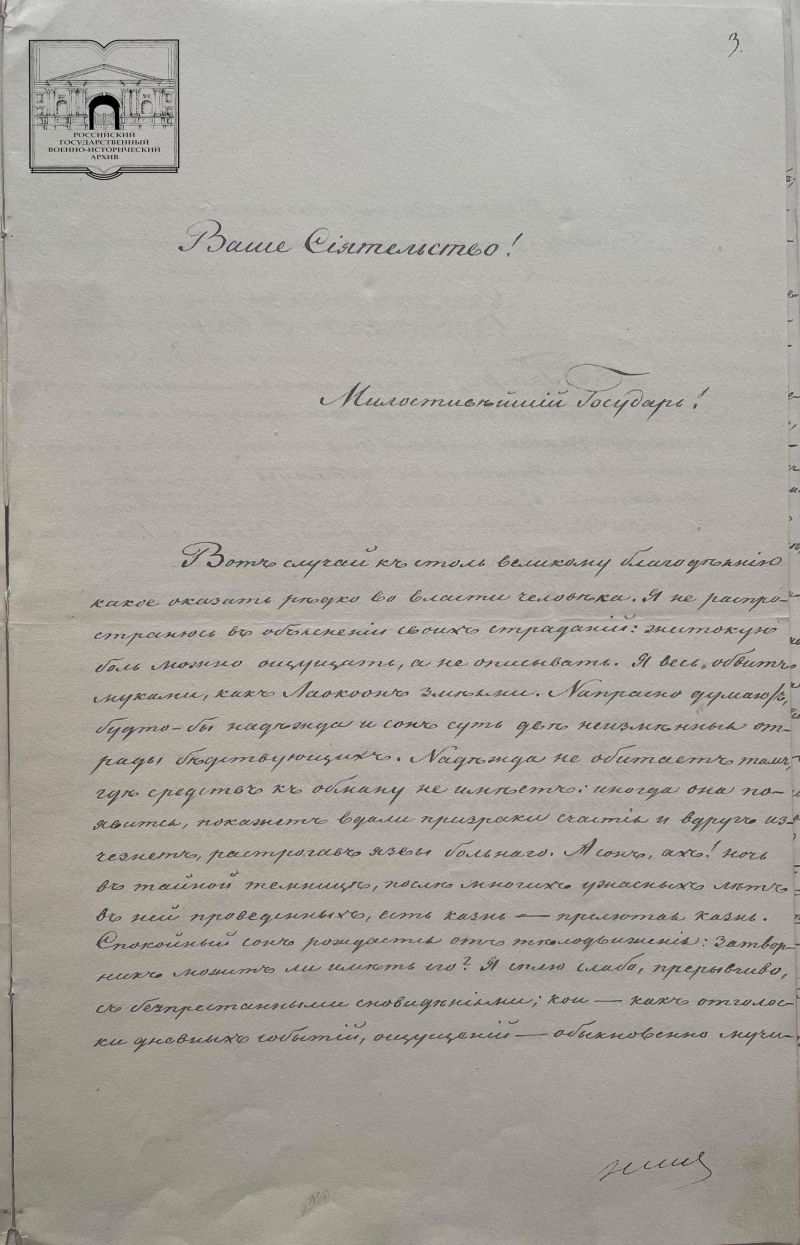 3.
РОССИЙСКИЙ
ГОСУДАРСТВЕННЫЙ
ВОЕННО-ИСТОРИЧЕСКИЙ
АРХИВ
Ваше Сіятельство!
Милостивѣйшій Государь!
Вотъ случай къ столь великому благодѣянію
какое оказать рѣдко во власти человѣка. Я не распро-
странюсь въ объясненіи своихъ страданій: жестокую
боль можно ощущать, а не описывать. Я весь обвитъ
муками, какъ Лаокоонъ змѣями. Напрасно думаютъ,
будто-бы надѣжда и сонъ суть двѣ неизмѣнныя от-
рады бѣдствующихъ. Надѣжда не обитаетъ тамъ,
гдѣ средствъ къ обману не имѣетъ: иногда она по-
явится, покажетъ вдали призраки счастія и вдругъ из-
чезнетъ, растрогавъ язвы больнаго. А сонъ, ах! ночь
въ тайной темницѣ, послѣ многихъ ужасныхъ лѣтъ
въ ней проведенныхъ, есть казнь — прелютая казнь.
Спокойный сонъ рождается отъ тѣлодвиженія: Затвор-
никъ можетъ ли имѣть его? Я сплю слабо, прерывчиво,
съ безпрестанными сновидѣніями; кои — какъ отголос-
ки дневныхъ событій, ощущеній — обыкновенно мучи-